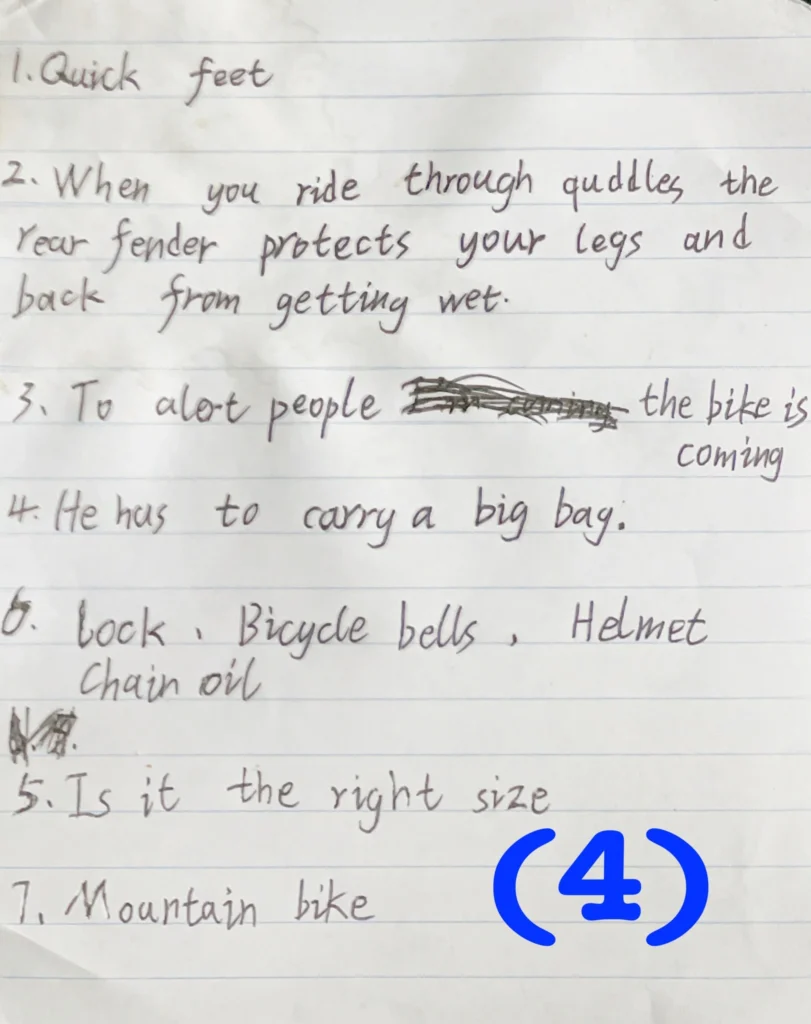 1. Quick feet
2. When you ride through quddles the
rear fender protects your legs and
back from getting wet.
3、To alot people the bike is
coming
4. He has to carry a big bag.
6. Lock、Bicycle bells, Helmet
Chain oil
5. Is it the right size
7. Mountain bike
(4)